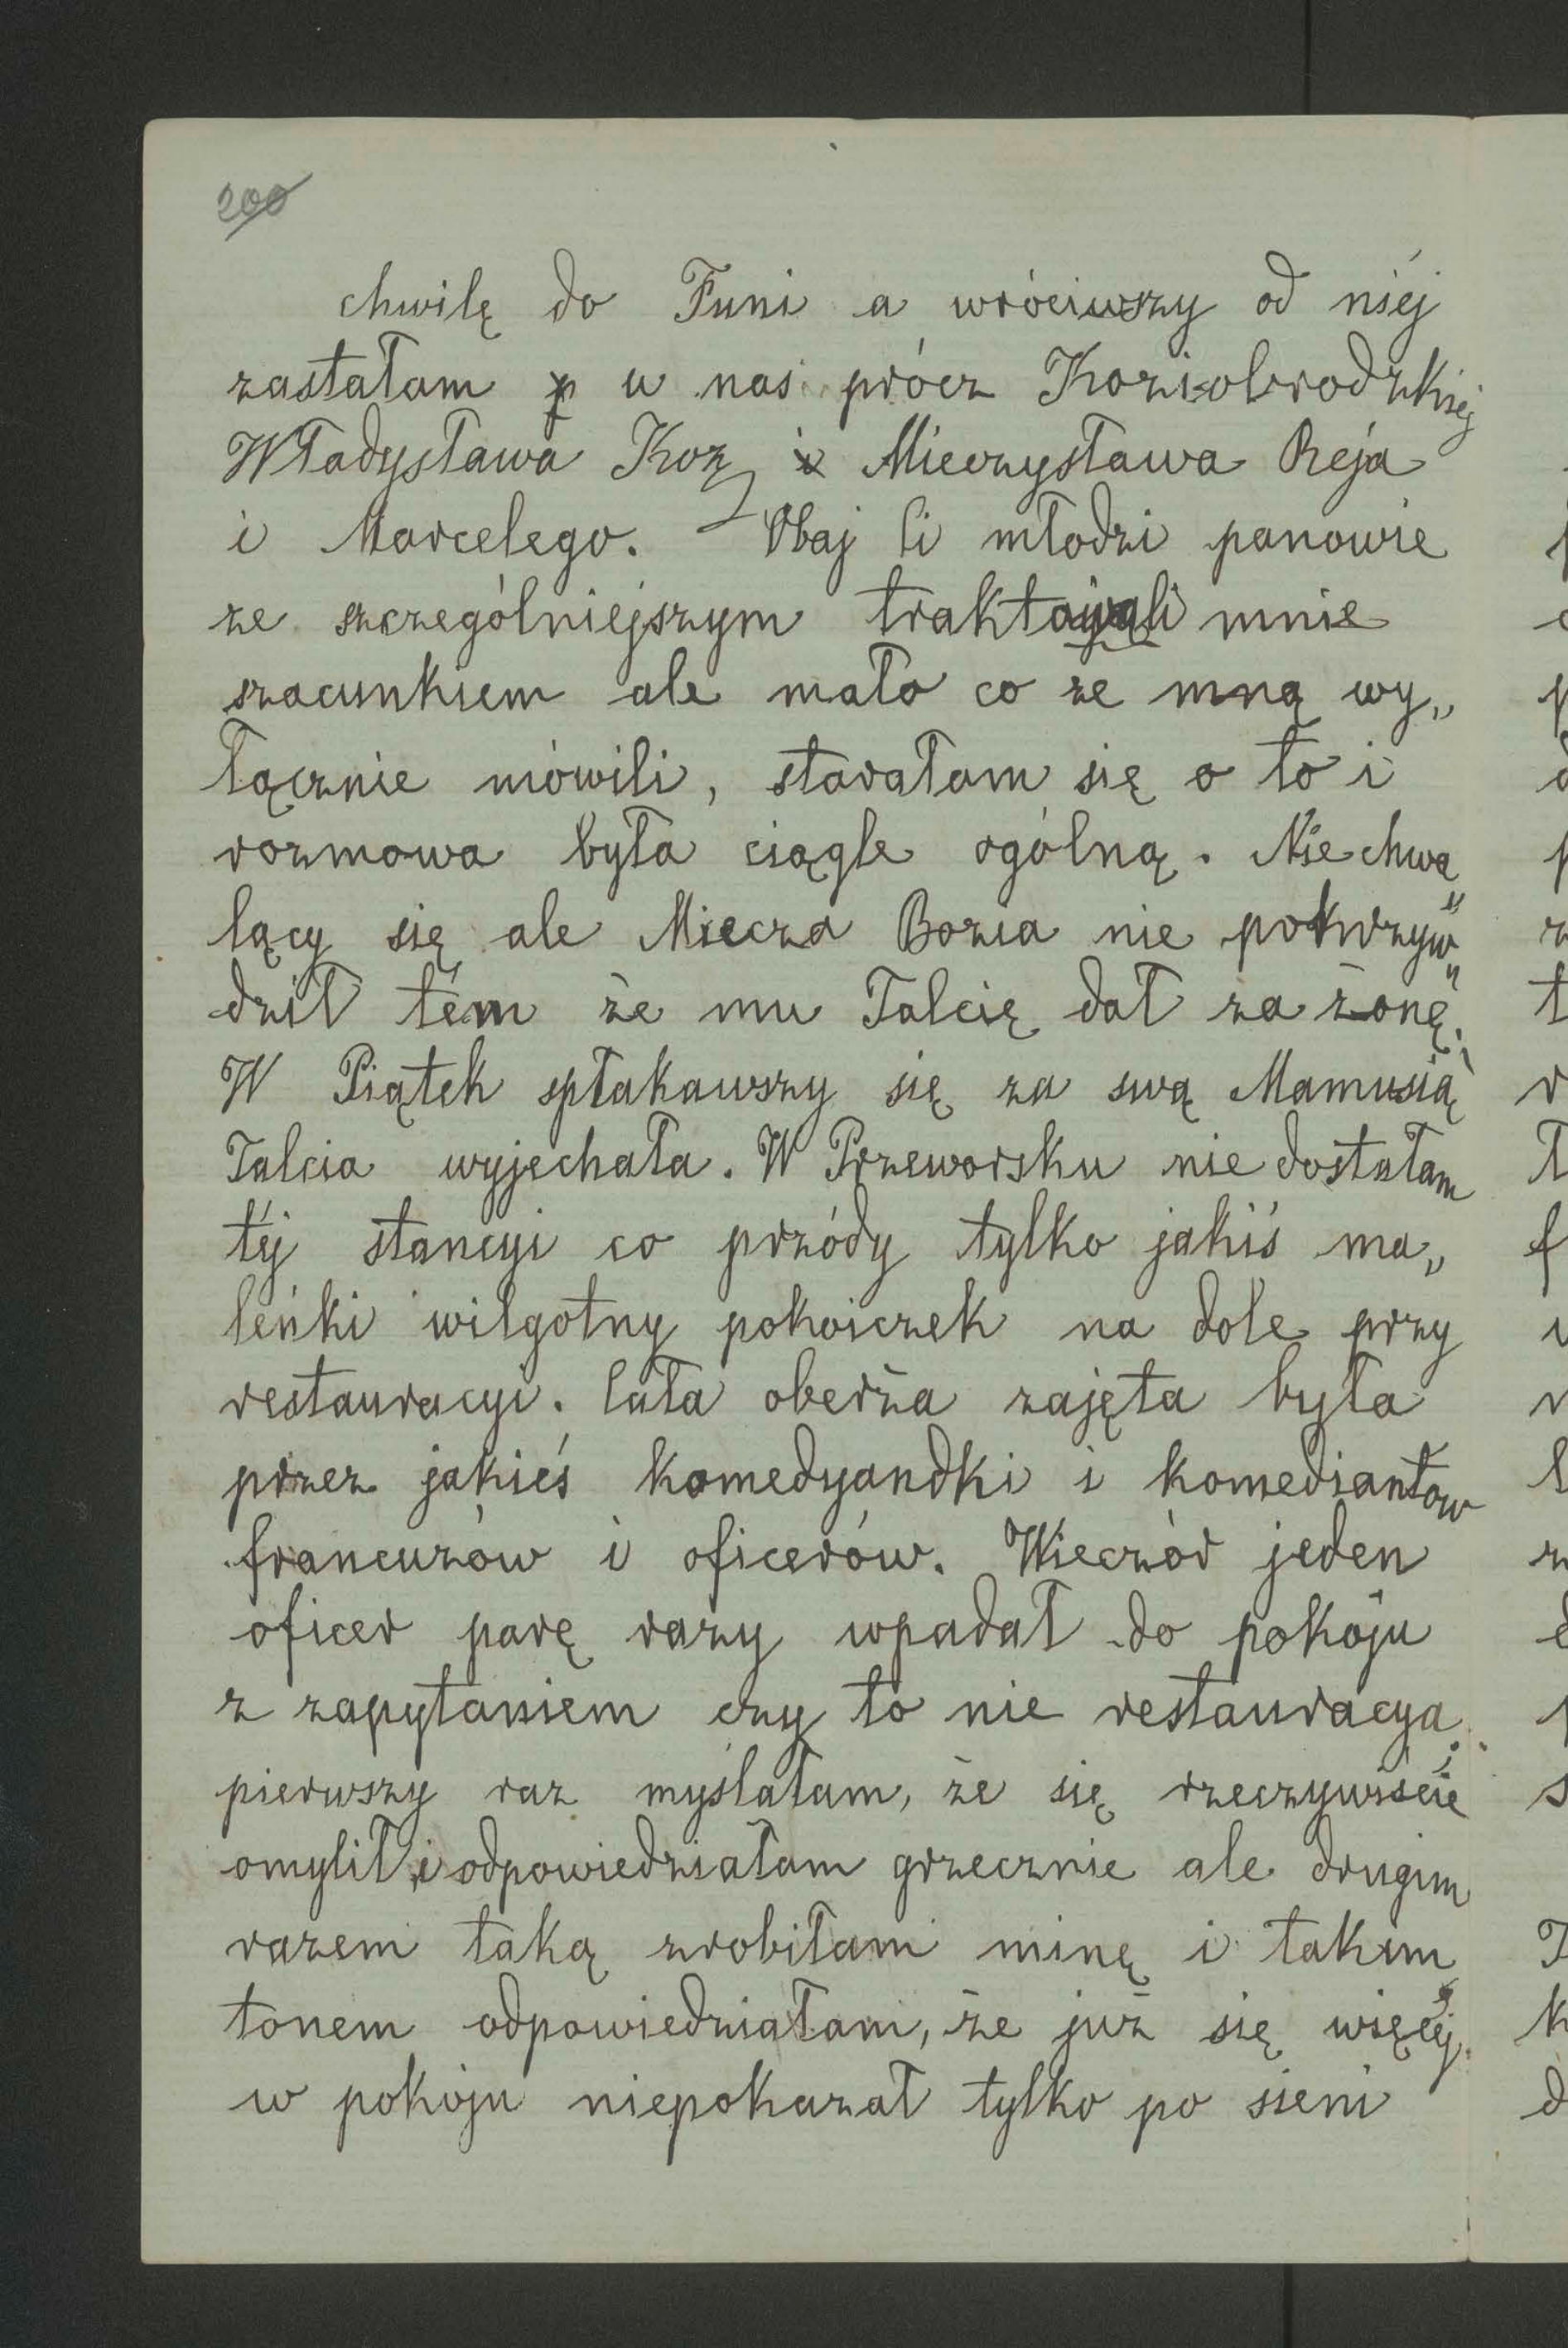 200
chwilę do Funi a wróciwszy od niéj
zastałam p u nas prócz Koziobrodzkiej
Władysława Koz i Mieczysława Reja
i Marcelego. Obaj ci młodzi panowie
ze szczególniejszym traktowali mnie
szacunkiem ale mało co ze mną wy„
łącznie mówili, starałam się o to i
rozmowa była ciągle ogólną. Nie chwa„
lący się ale Miecza Bozia nie pokrzyw„
dził tém że mu Talcię dał za żonę.
W Piątek spłakawszy się za swą Mamusią
Talcia wyjechała. W Przeworsku nie dostałam
téj stancyi co przódy tylko jakiś ma„
leńki wilgotny pokoiczek na dole przy
restauracyi. Cała oberża zajęta była
przez jakieś komedyandki i komediantów
francuzów i oficerów. Wieczór jeden
oficer parę razy wpadał do pokoju
z zapytaniem czy to nie restauracya;
pierwszy raz myślałam, że się rzeczywiście
omylił i odpowiedziałam grzecznie ale drugim
razem taką zrobiłam minę i takim
tonem odpowiedziałam, że już się więcéj
w pokoju niepokazał tylko po sieni